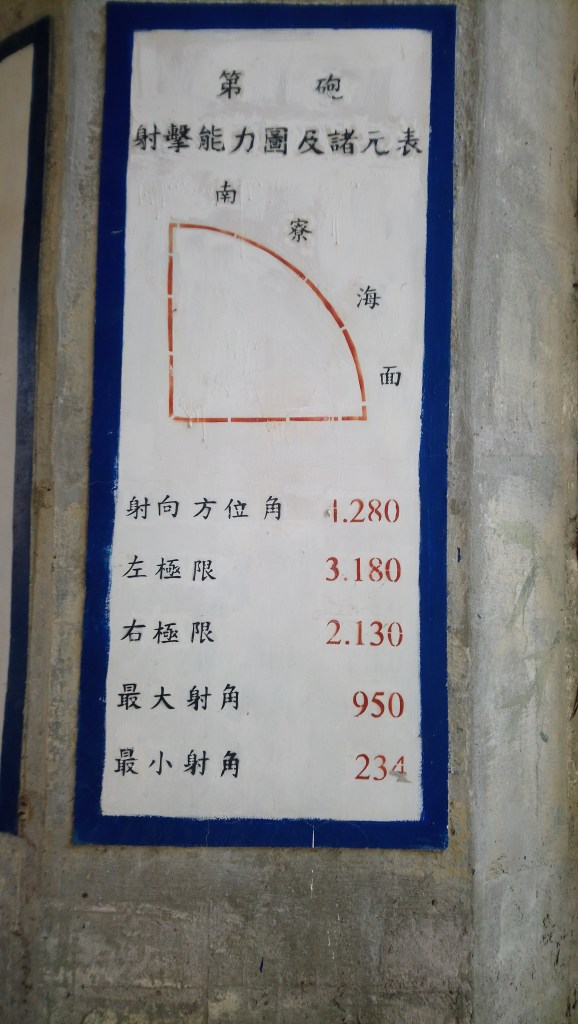 第 砲
射擊能力圖及諸元表
南寮海面
射向方位角 1.280
左極限 3.180
右極限 2.130
最大射角 950
最小射角 234